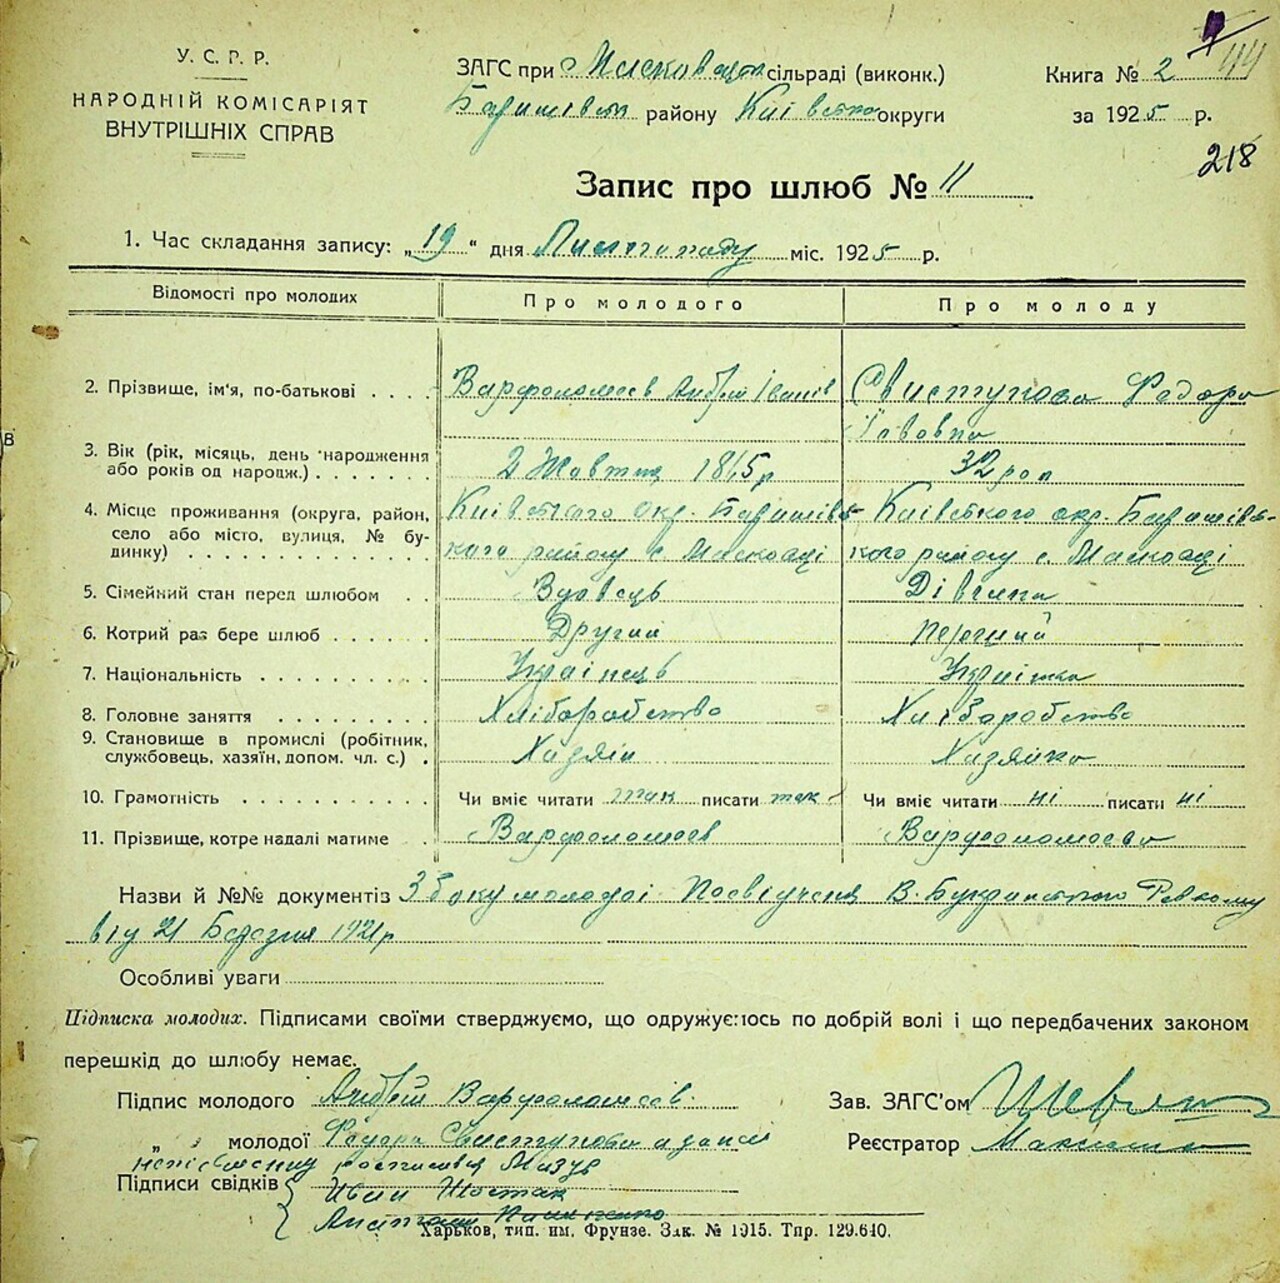 У. С. Р. Р.
НАРОДНІЙ КОМІСАРІЯТ
ВНУТРІШНІХ СПРАВ
ЗАГС при сільраді (виконк.)
району округи
Книга № 2 44
за 1925 р.
218
Запис про шлюб № 11
1. Час складання запису: „19“ дня Листопаду міс. 1925 р.
Відомості про молодих Про молодого Про молоду
2. Прізвище, ім'я, по-батькові . . . . Варфоломеєв Андрій Іванів Свистунова Федора
Савовна
3. Вік (рік, місяць, день народження
або років од народж.) . . . . . . . 2 Жовтня 32 рок
4. Місце проживання (округа, район,
село або місто, вулиця, № бу-
динку) . . . . . . . . . . . . Київського окр. Баришівс- Київського окр. Баришівс-
кого району с. кого району с.
5. Сімейний стан перед шлюбом . . Вдовець Дівчина
6. Котрий раз бере шлюб . . . . . . Другий первий
7. Національність . . . . . . . . . Українець Українка
8. Головне заняття . . . . . . . . . Хліборобство Хліборобство
9. Становище в промислі (робітник,
службовець, хазяїн, допом. чл. с.) . Хазяїн Хазяйка
10. Грамотність . . . . . . . . . . . Чи вміє читати так писати так Чи вміє читати ні писати ні
11. Прізвище, котре надалі матиме . Варфоломеєв Варфоломеєва
Назви й №№ документів З боку молодої Посвідченя В. Букринського Ревкому
від 21 Березня 1921 р
Особливі уваги
Підписка молодих. Підписами своїми стверджуємо, що одружуємось по добрій волі і що передбачених законом
перешкід до шлюбу немає.
Підпис молодого Андрей Варфоломеєв.
Зав. ЗАГС'ом
„ „ молодої Федора Свистунова а за неї
Реєстратор
неписьменну росписався Мазур
Підписи свідків Иван Шостак
Харьков, тип. им. Фрунзе. Зак. № 1915. Тпр. 129.640.